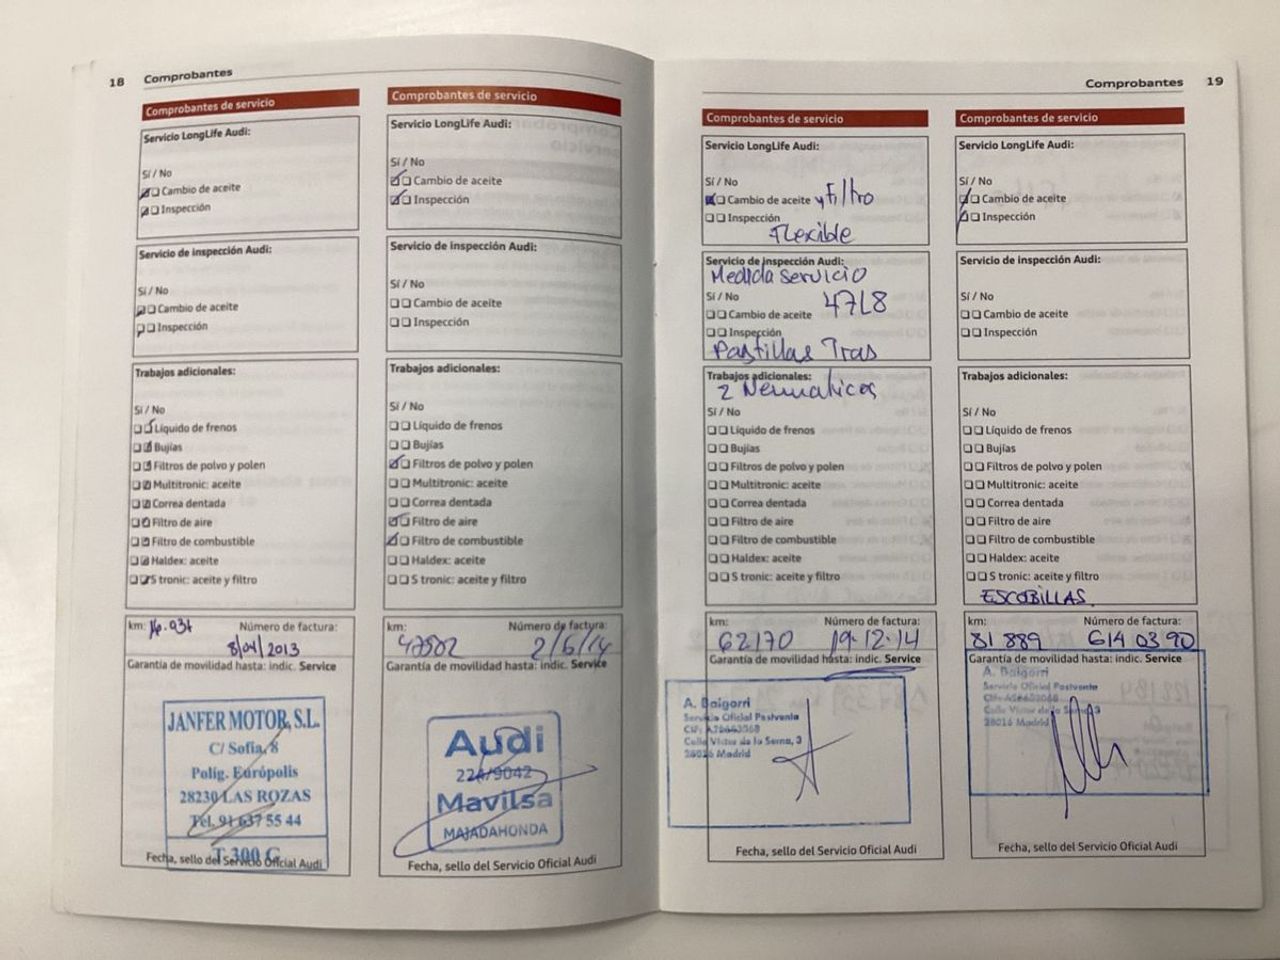 18 Comprobantes
Comprobantes de servicio
Servicio LongLife Audi:
Sí / No
Cambio de aceite
Inspección
Servicio de inspección Audi:
Sí / No
Cambio de aceite
Inspección
Trabajos adicionales:
Sí / No
Líquido de frenos
Bujías
Filtros de polvo y polen
Multitronic: aceite
Correa dentada
Filtro de aire
Filtro de combustible
Haldex: aceite
S tronic: aceite y filtro
km: Número de factura:
8/04/2013
Garantía de movilidad hasta: indic. Service
JANFER MOTOR, S.L.
C/ Sofía, 8
Políg. Európolis
28230 LAS ROZAS
Tel. 91 637 55 44
T 300 G
Fecha, sello del Servicio Oficial Audi
Comprobantes de servicio
Servicio LongLife Audi:
Sí / No
Cambio de aceite
Inspección
Servicio de inspección Audi:
Sí / No
Cambio de aceite
Inspección
Trabajos adicionales:
Sí / No
Líquido de frenos
Bujías
Filtros de polvo y polen
Multitronic: aceite
Correa dentada
Filtro de aire
Filtro de combustible
Haldex: aceite
S tronic: aceite y filtro
km: Número de factura:
2/6/14
Garantía de movilidad hasta: indic. Service
Audi
Mavilsa
MAJADAHONDA
Fecha, sello del Servicio Oficial Audi
Comprobantes 19
Comprobantes de servicio
Servicio LongLife Audi:
Sí / No
Cambio de aceite y Filtro
Inspección
Flexible
Servicio de inspección Audi:
Medida servicio
Sí / No 47L8
Cambio de aceite
Inspección
Pastillas Tras
Trabajos adicionales:
2 Neumaticos
Sí / No
Líquido de frenos
Bujías
Filtros de polvo y polen
Multitronic: aceite
Correa dentada
Filtro de aire
Filtro de combustible
Haldex: aceite
S tronic: aceite y filtro
km: Número de factura:
62170 19-12-14
Garantía de movilidad hasta: indic. Service
A. Baigorri
Servicio Oficial Postventa
Calle Víctor de la Serna, 3
28016 Madrid
Fecha, sello del Servicio Oficial Audi
Comprobantes de servicio
Servicio LongLife Audi:
Sí / No
Cambio de aceite
Inspección
Servicio de inspección Audi:
Sí / No
Cambio de aceite
Inspección
Trabajos adicionales:
Sí / No
Líquido de frenos
Bujías
Filtros de polvo y polen
Multitronic: aceite
Correa dentada
Filtro de aire
Filtro de combustible
Haldex: aceite
S tronic: aceite y filtro
ESCOBILLAS.
km: Número de factura:
81 889 614 03 90
Garantía de movilidad hasta: indic. Service
A. Baigorri
Servicio Oficial Postventa
Calle Víctor de la Serna, 3
28016 Madrid
Fecha, sello del Servicio Oficial Audi